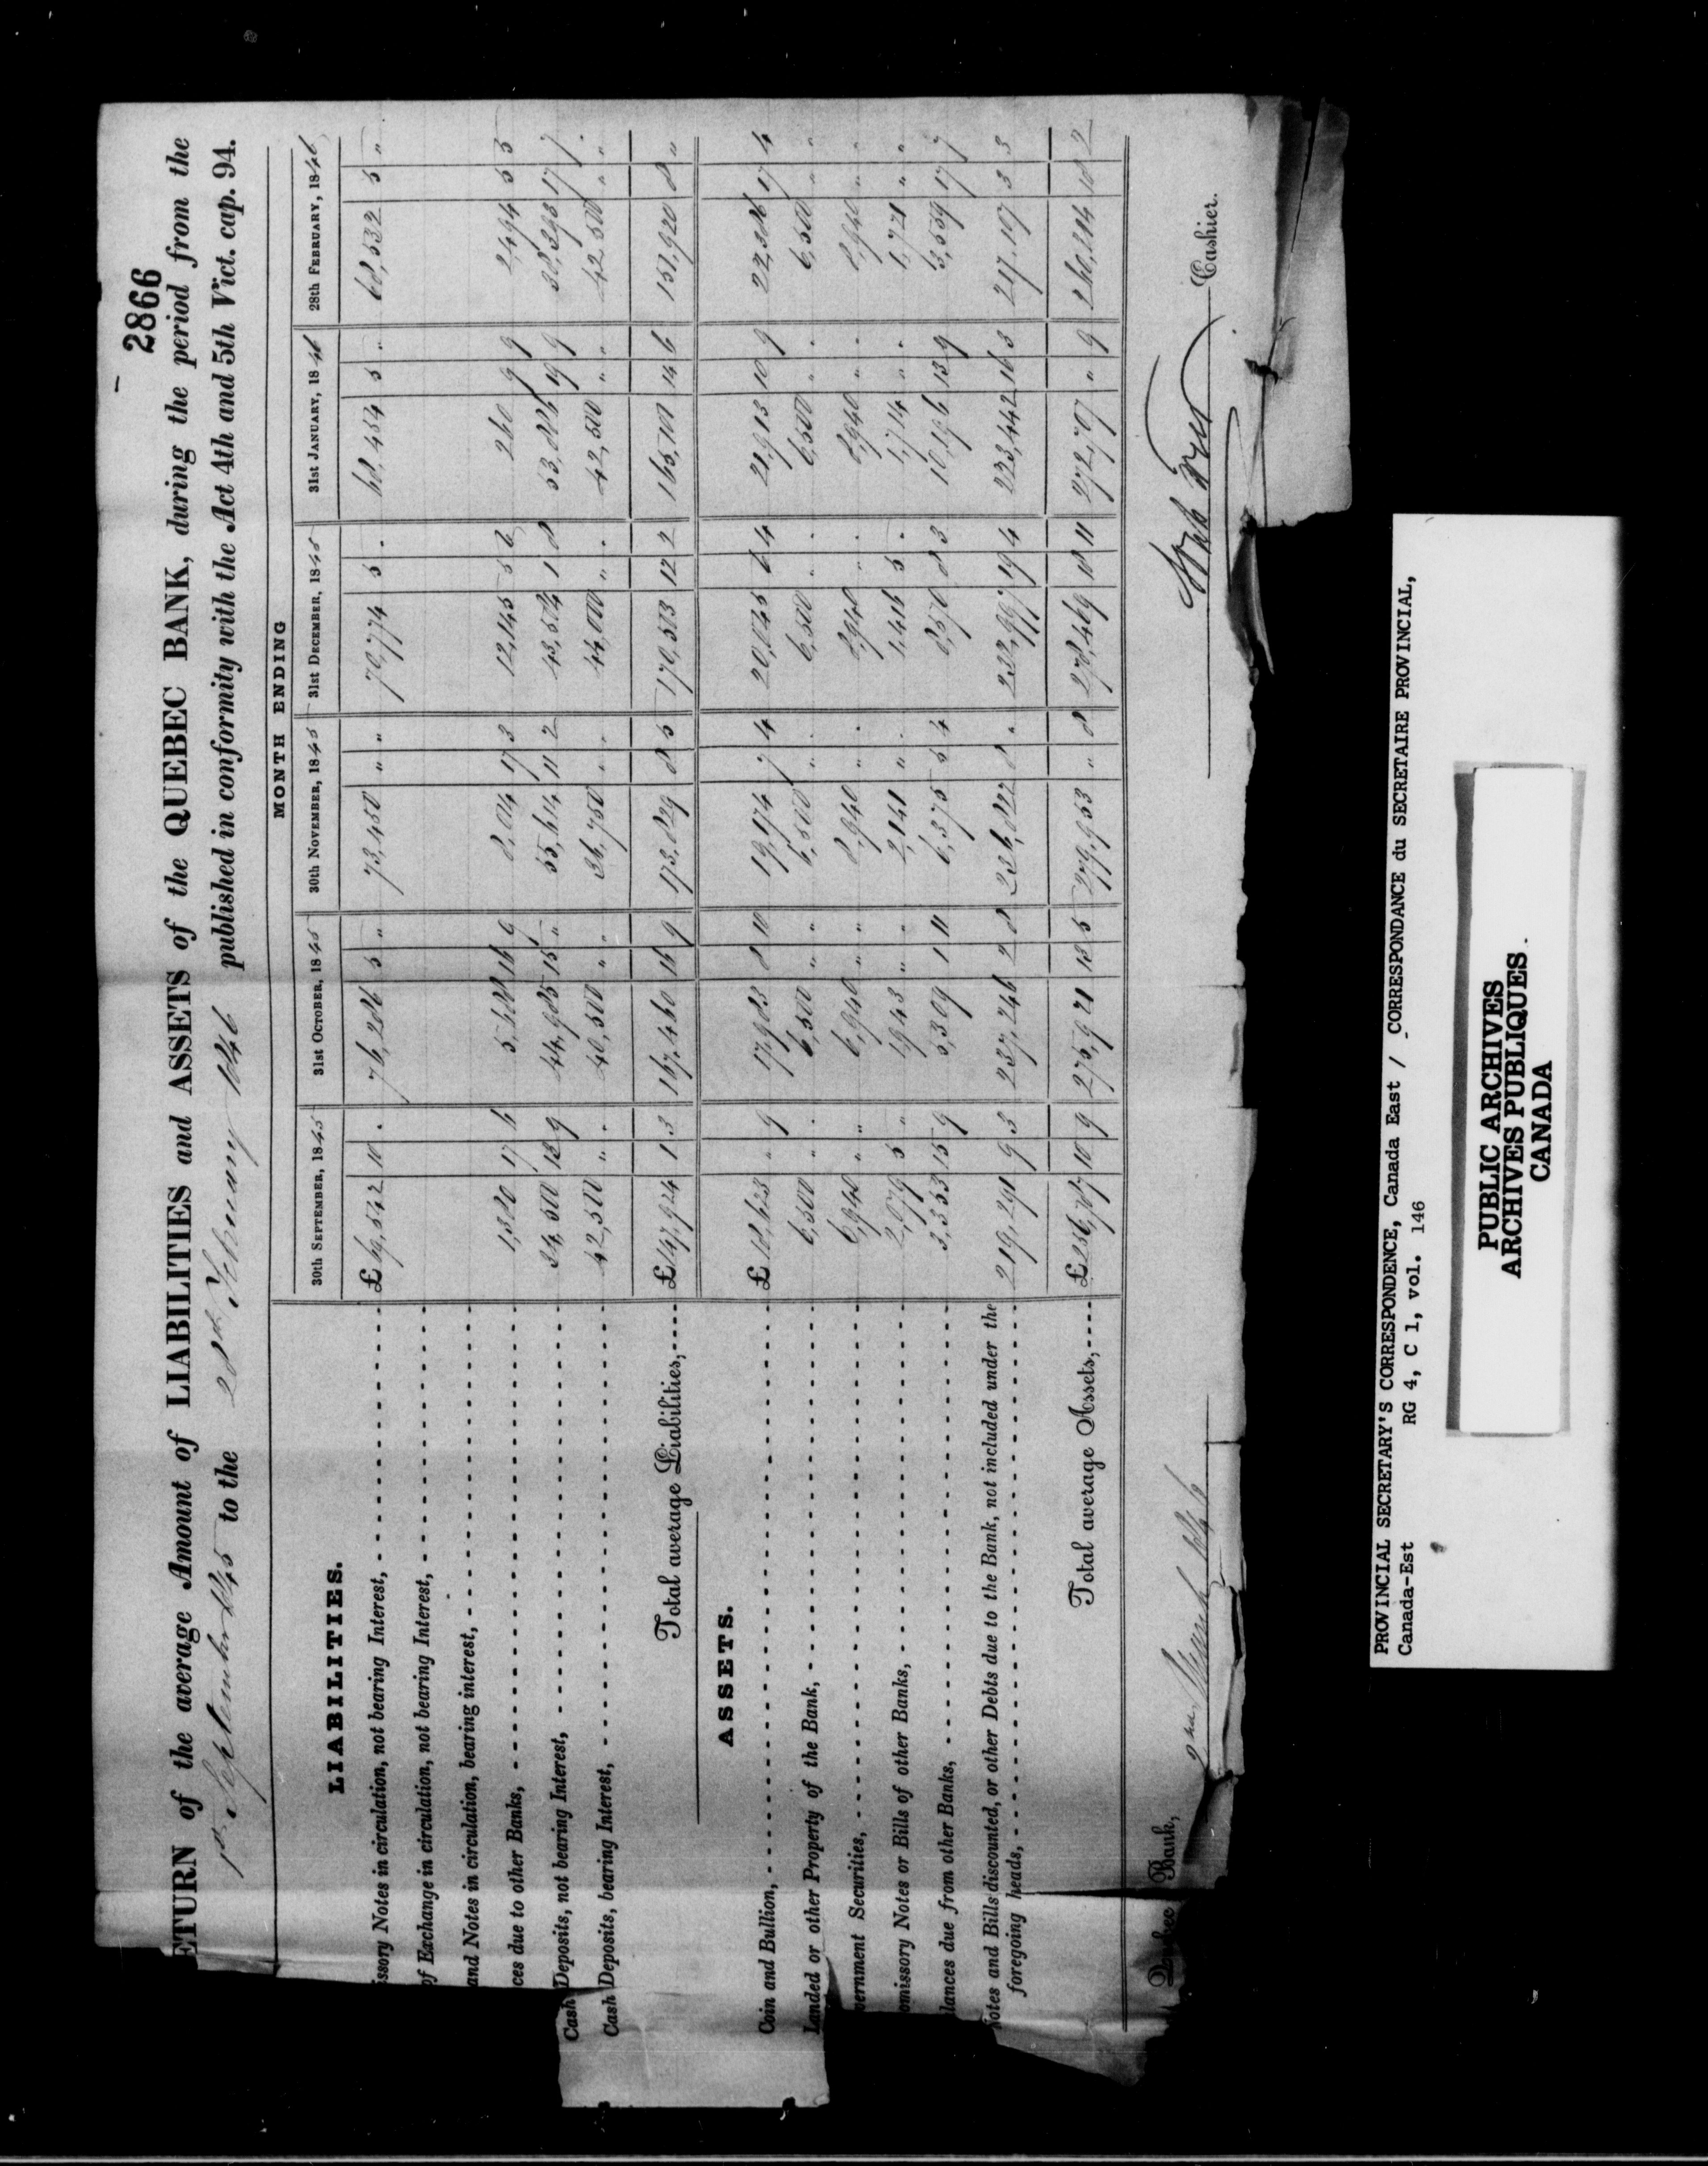 2866
ETURN of the average Amount of LIABILITIES and ASSETS of the QUEBEC BANK, during the period from the
1st September 1845 to the 28th February 1846 published in conformity with the Act 4th and 5th Vict. cap. 94.
MONTH ENDING
LIABILITIES. 30th SEPTEMBER, 1845 31st OCTOBER, 1845 30th NOVEMBER, 1845 31st DECEMBER, 1845 31st JANUARY, 1846 28th FEBRUARY, 1846
issory Notes in circulation, not bearing Interest, £ 69,542 10 . 76,286 5 " 73,450 " " 70,774 5 . 68,454 5 . 68,532 5 "
of Exchange in circulation, not bearing Interest,
and Notes in circulation, bearing interest,
ces due to other Banks, 1,380 17 6 5,688 16 9 8,014 17 3 12,145 5 6 260 9 9 2,494 5 5
Cash Deposits, not bearing Interest, 34,500 13 9 44,985 15 " 55,614 11 2 43,584 1 8 53,886 19 9 38,393 17 7
Cash Deposits, bearing Interest, 42,500 " . 40,500 " . 36,750 " . 44,000 " . 42,500 " . 42,500 " "
Total average Liabilities, £ 147,924 1 3 167,460 16 9 173,829 8 5 170,503 12 2 165,101 14 6 151,920 8 "
ASSETS.
Coin and Bullion, £ 18,623 " 9 17,983 8 10 19,174 7 4 20,045 6 4 21,913 10 9 22,386 17 4
Landed or other Property of the Bank, 6,500 " . 6,500 " " 6,500 " . 6,500 " . 6,500 " . 6,500 " "
vernment Securities, 6,940 " " 6,940 " " 8,940 " . 8,940 " . 8,940 " . 8,940 " "
omissory Notes or Bills of other Banks, 2,079 5 " 1,943 " " 2,141 " . 1,416 5 . 1,714 " . 1,721 " "
lances due from other Banks, 3,353 15 9 5,309 1 11 6,375 5 4 8,570 8 3 10,196 13 9 3,559 17 7
Notes and Bills discounted, or other Debts due to the Bank, not included under the
foregoing heads, 219,291 9 3 237,246 2 8 236,822 8 . 232,997 19 4 223,442 16 3 217,107 3 3
Total average Assets, £ 256,787 10 9 275,921 13 5 279,953 " 8 278,469 18 11 272,707 " 9 260,214 18 2
Quebec Bank,
2nd March 1846
Noah Freer Cashier.
PROVINCIAL SECRETARY'S CORRESPONDENCE, Canada East / CORRESPONDANCE du SECRETAIRE PROVINCIAL,
Canada-Est RG 4, C 1, vol. 146
PUBLIC ARCHIVES
ARCHIVES PUBLIQUES
CANADA